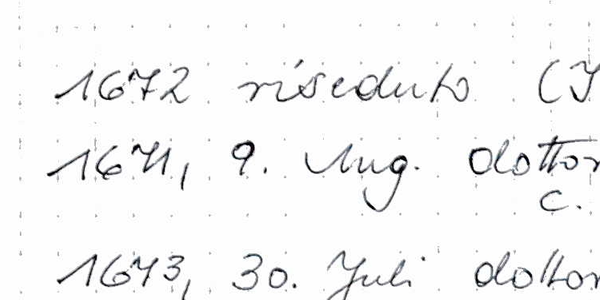 1672 riseduto (I
1671, 9. Aug. dottor
c.
1673, 30. Juli dottor